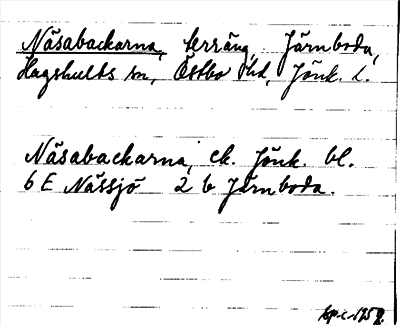 Näsabackarna, terräng, Järnboda,
Hagshults sn, Östbo hd, Jönk. l.
Näsabackarna, ek. Jönk. bl.
6 E Nässjö 2 b Järnboda.